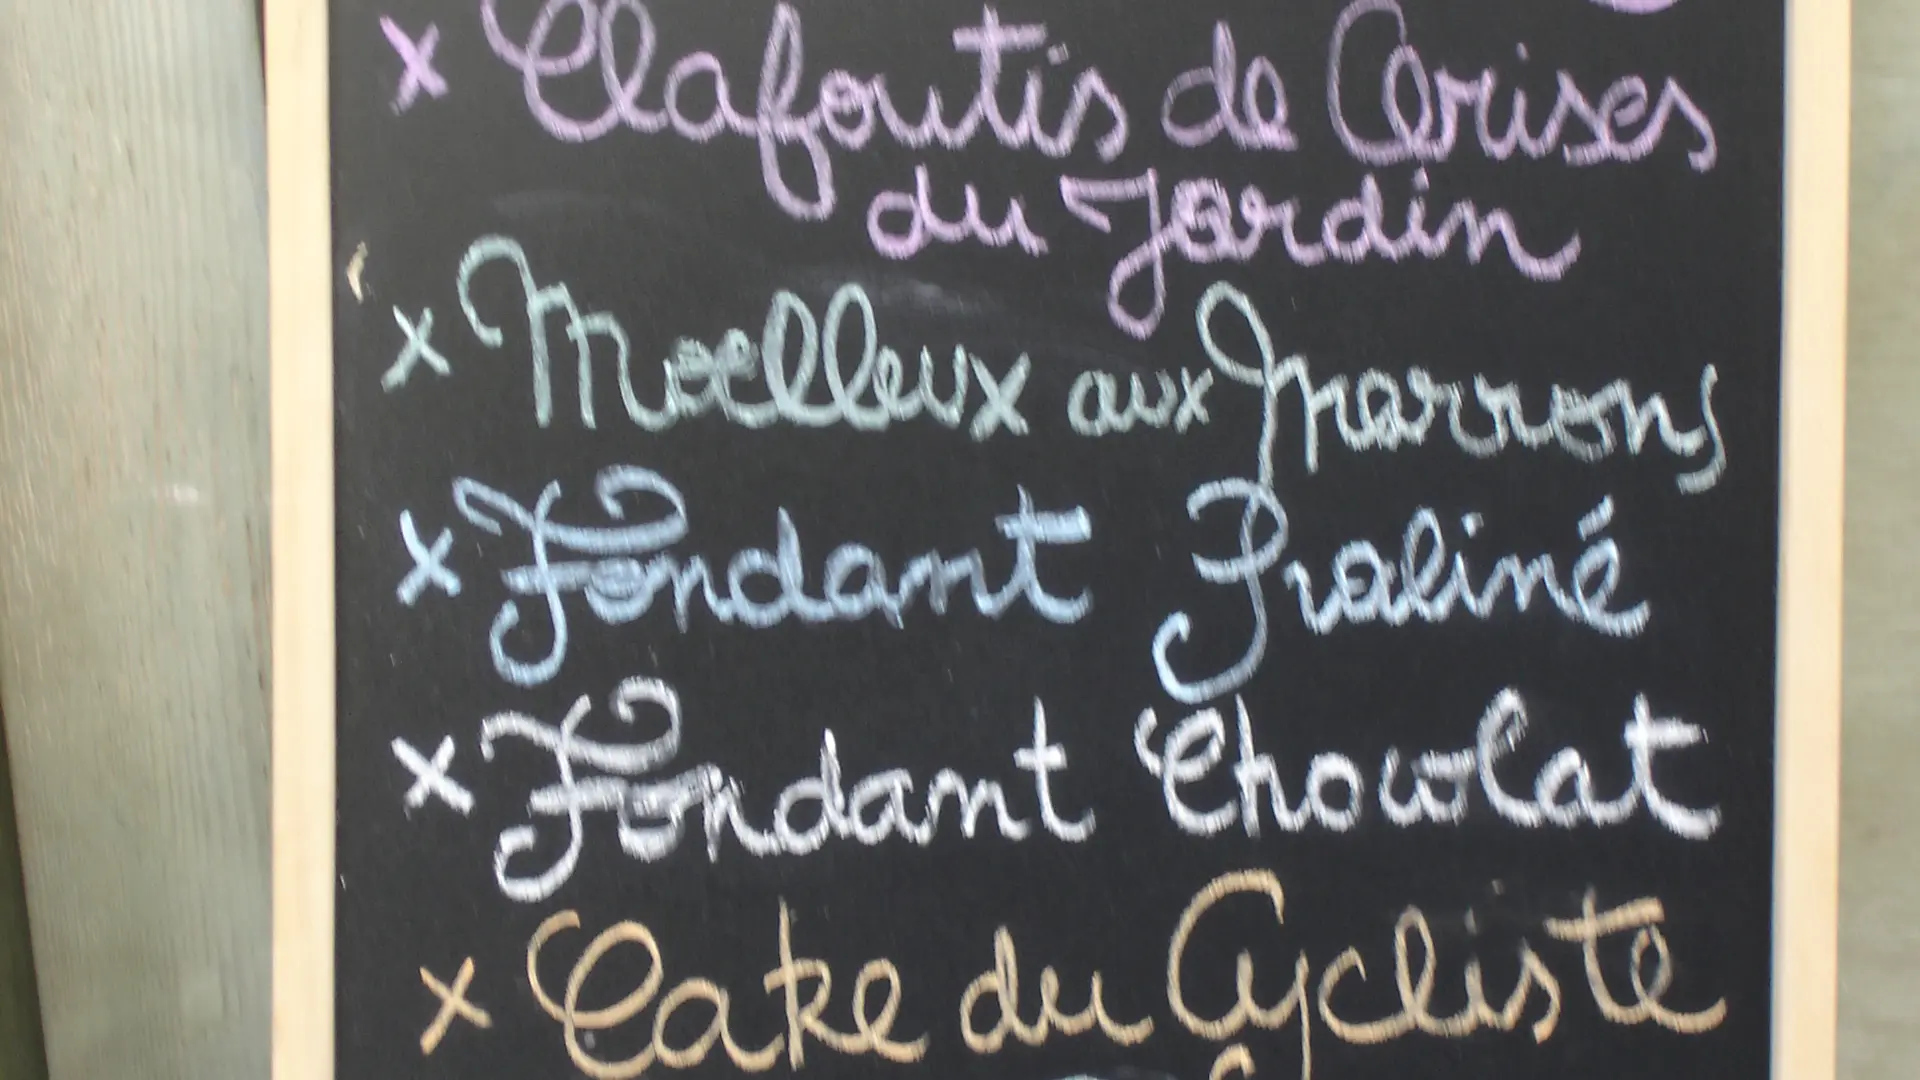 x Clafoutis de Cerises
du Jardin
x Moelleux aux Marrons
x Fondant Praliné
x Fondant Chocolat
x Cake du Cycliste